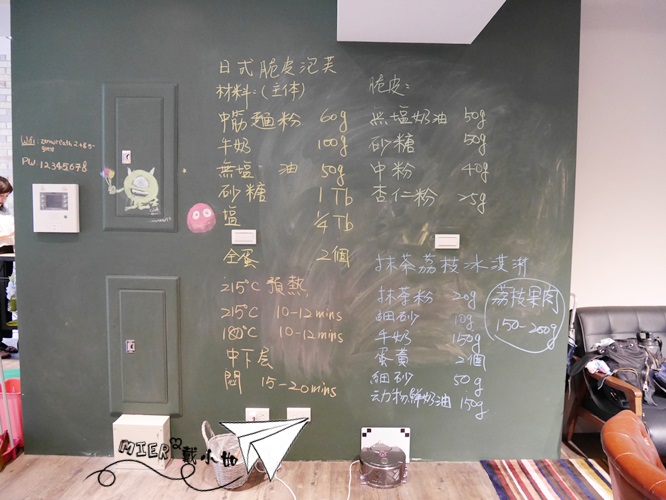 日式脆皮泡芙
材料:(主体)
中筋麵粉 60g
牛奶 100g
無塩 油 50g
砂糖 1 Tb
塩 1/4 Tb
全蛋 2個
215°C 預熱
215°C 10-12 mins
180°C 10-12 mins
中下层
悶 15-20mins
脆皮:
無塩奶油 50g
砂糖 50g
中粉 40g
杏仁粉 25g
抹茶荔枝冰淇淋
抹茶粉 20g
細砂 10g
牛奶 150g
蛋黃 2個
細砂 50g
动物鮮奶油 150g
荔枝果肉
150-200g
Wifi:
PW 12345678
MIER
戴小如